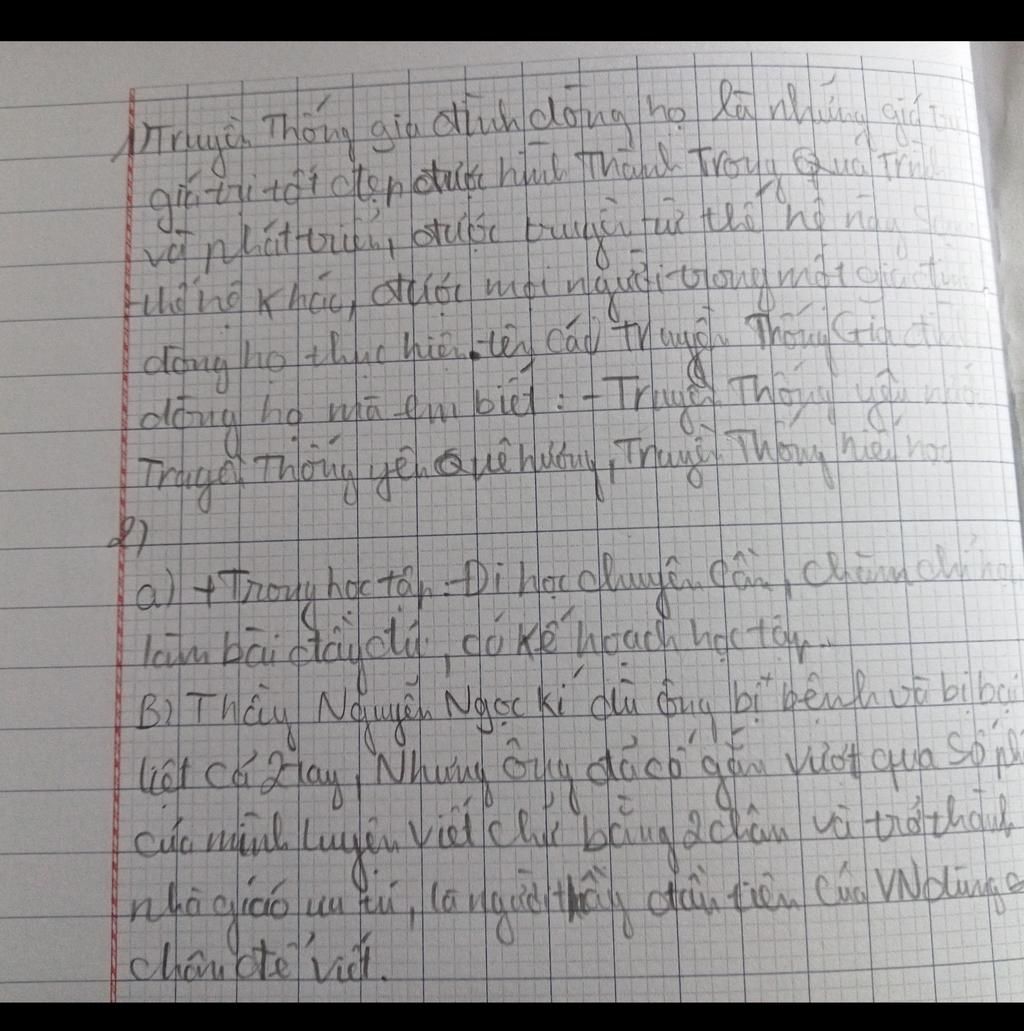 1) Truyền Thống gia đình dòng họ là những giá
giá trị tốt đẹp được hình Thành Trong Quá Trình
và phát triển, được truyền từ thế hệ này sang
thế hệ khác, được mọi người trong một gia đình,
dòng họ thực hiện. tên các Truyền Thống Gia đình
dòng họ mà em biết: - Truyền Thống yêu nước
Truyền Thống yêu Quê hương, Truyền Thống hiếu học
2)
a) + Trong học tập: Đi học chuyên cần, chăm chỉ học
làm bài đầy đủ, có kế hoạch học tập..
B) Thầy Nguyễn Ngọc kí dù ông bị bệnh và bị bại
liệt cả 2 tay, Nhưng ông đã cố gắn vượt qua số
của mình luyện viết chữ bằng 2 chân và trở thành
nhà giáo ưu tú, là người thầy đầu tiên của VN dùng
chân để viết.